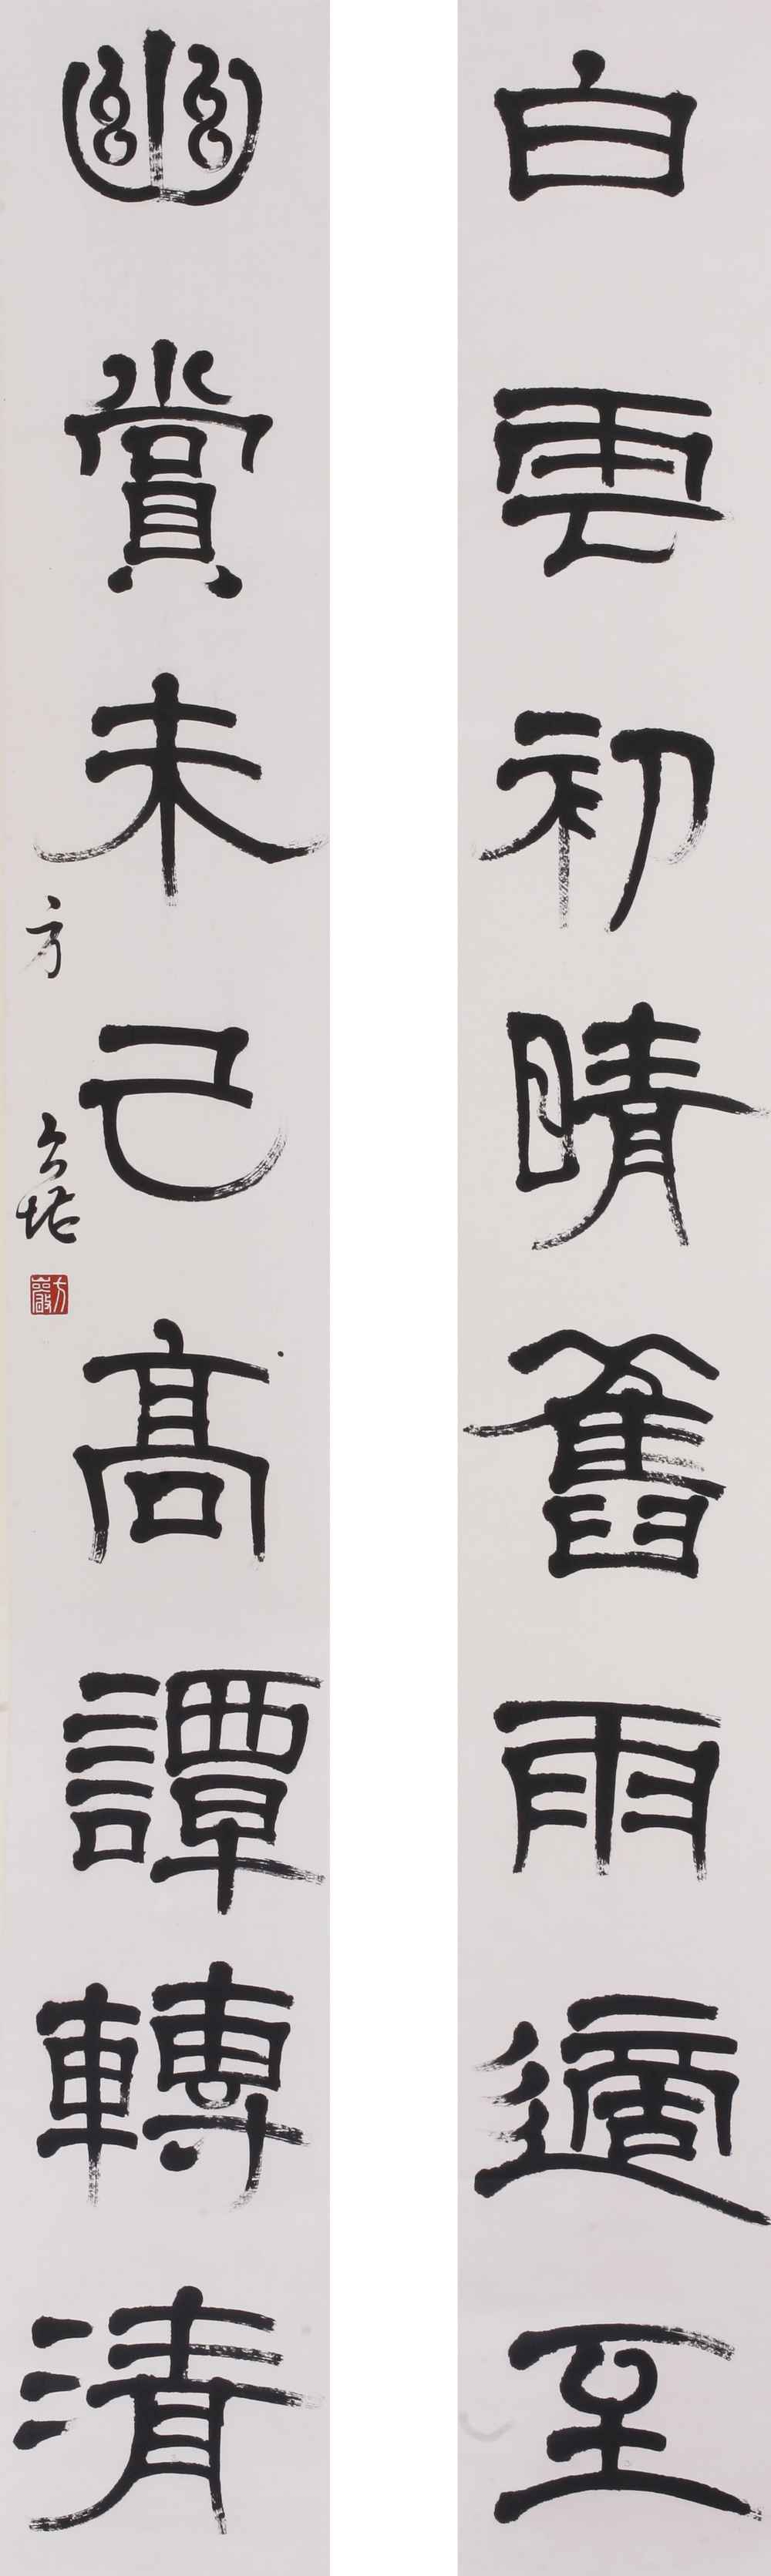 白雲初晴舊雨適至
幽賞未已高譚轉清
方